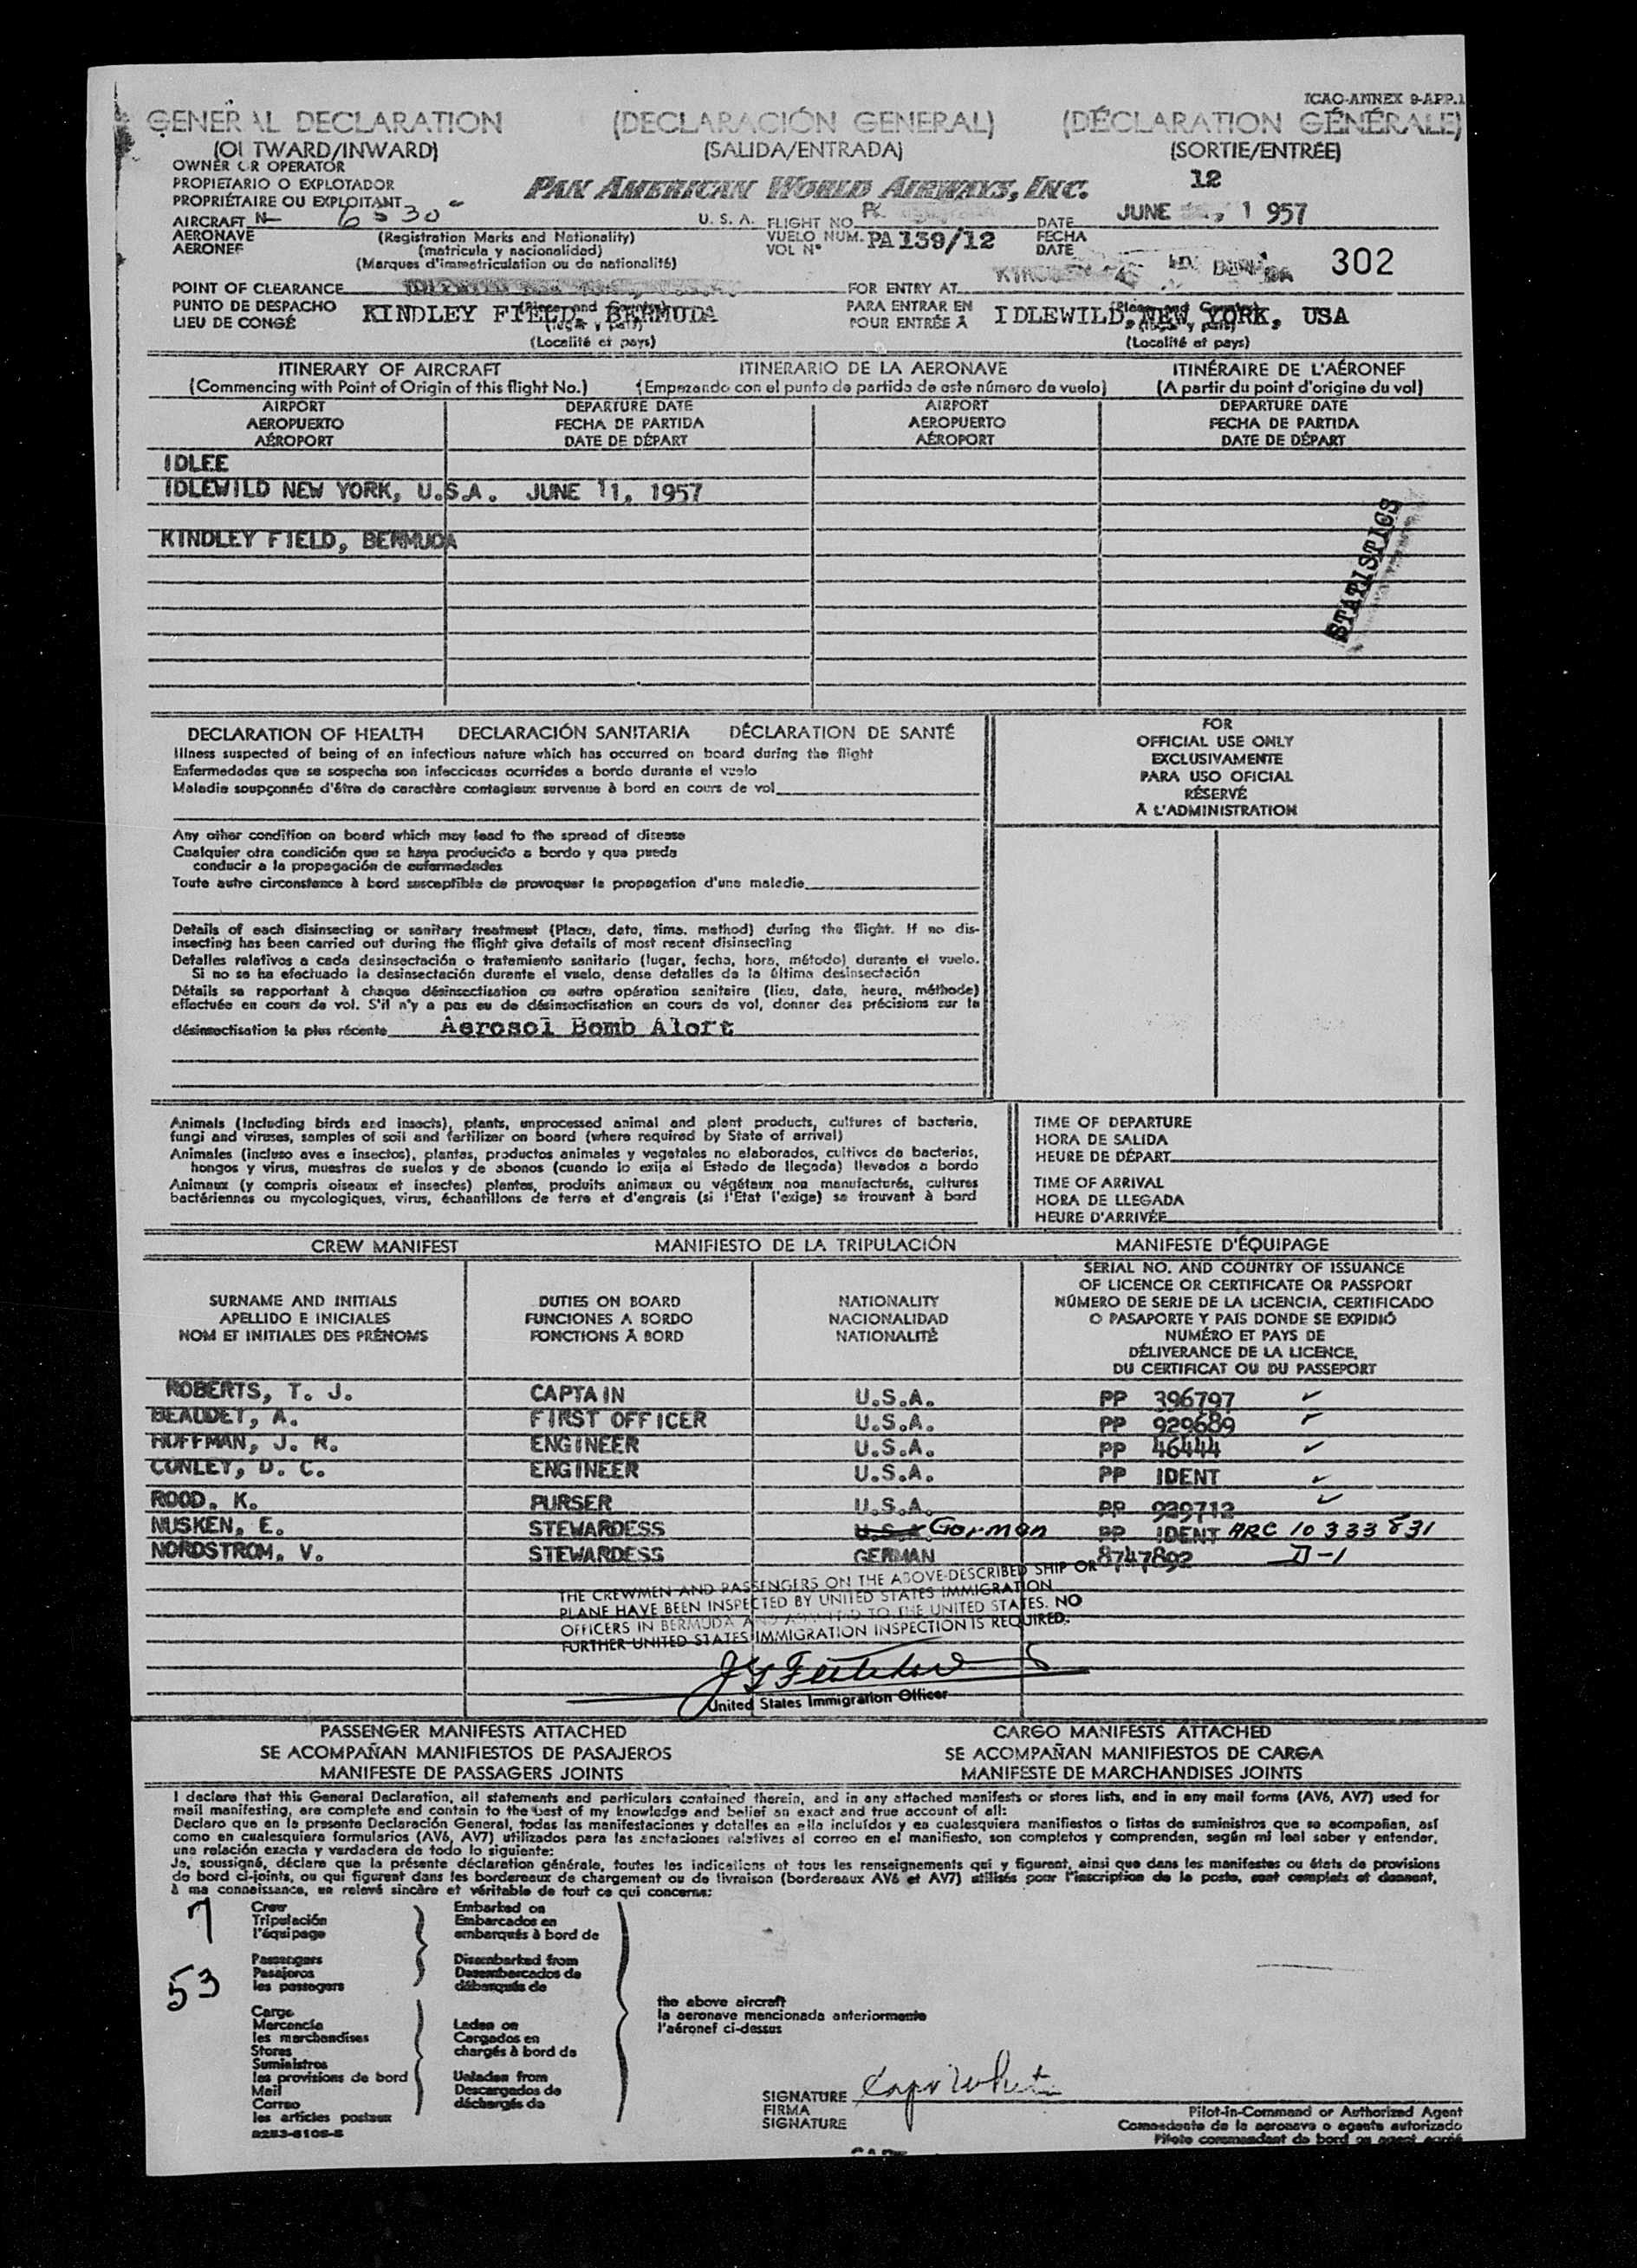 ICAO-ANNEX 9-APP.1
GENERAL DECLARATION (DECLARACIÓN GENERAL) (DÉCLARATION GÉNÉRALE)
(OUTWARD/INWARD) (SALIDA/ENTRADA) (SORTIE/ENTRÉE)
OWNER OR OPERATOR
PROPIETARIO O EXPLOTADOR
PROPRIÉTAIRE OU EXPLOITANT
PAN AMERICAN WORLD AIRWAYS, INC.
12
AIRCRAFT N- 6530 U. S. A. FLIGHT NO. DATE JUNE , 1957
AERONAVE (Registration Marks and Nationality) VUELO NUM. PA 139/12 FECHA
AERONEF (matricula y nacionalidad) VOL N° DATE
(Marques d'immatriculation ou de nationalité)
302
POINT OF CLEARANCE FOR ENTRY AT
PUNTO DE DESPACHO KINDLEY FIELD, BERMUDA PARA ENTRAR EN IDLEWILD, NEW YORK, USA
LIEU DE CONGÉ POUR ENTRÉE À
(Place and Country) (Place and Country)
(lugar y país) (lugar y país)
(Localité et pays) (Localité et pays)
ITINERARY OF AIRCRAFT ITINERARIO DE LA AERONAVE ITINÉRAIRE DE L'AÉRONEF
(Commencing with Point of Origin of this flight No.) (Empezando con el punto de partida de este número de vuelo) (A partir du point d'origine du vol)
AIRPORT DEPARTURE DATE AIRPORT DEPARTURE DATE
AEROPUERTO FECHA DE PARTIDA AEROPUERTO FECHA DE PARTIDA
AÉROPORT DATE DE DÉPART AÉROPORT DATE DE DÉPART
IDLEE
IDLEWILD NEW YORK, U.S.A. JUNE 11, 1957
KINDLEY FIELD, BERMUDA
STATISTICS
DECLARATION OF HEALTH DECLARACIÓN SANITARIA DÉCLARATION DE SANTÉ
Illness suspected of being of an infectious nature which has occurred on board during the flight
Enfermedades que se sospecha son infecciosas ocurridas a bordo durante el vuelo
Maladie soupçonnés d'être de caractère contagieux survenue à bord en cours de vol
Any other condition on board which may lead to the spread of disease
Cualquier otra condición que se haya producido a bordo y que pueda
conducir a la propagación de enfermedades
Toute autre circonstance à bord susceptible de provoquer la propagation d'une maladie
Details of each disinsecting or sanitary treatment (Place, date, time, method) during the flight. If no dis-
insecting has been carried out during the flight give details of most recent disinsecting
Detalles relativos a cada desinsectación o tratamiento sanitario (lugar, fecha, hora, método) durante el vuelo.
Si no se ha efectuado la desinsectación durante el vuelo, dense detalles de la última desinsectación
Détails se rapportant à chaque désinsectisation ou autre opération sanitaire (lieu, date, heure, méthode)
effectuée en cours de vol. S'il n'y a pas eu de désinsectisation en cours de vol, donner des précisions sur la
désinsectisation la plus récente Aerosol Bomb Aloft
FOR
OFFICIAL USE ONLY
EXCLUSIVAMENTE
PARA USO OFICIAL
RÉSERVÉ
À L'ADMINISTRATION
Animals (Including birds and insects), plants, unprocessed animal and plant products, cultures of bacteria,
fungi and viruses, samples of soil and fertilizer on board (where required by State of arrival)
Animales (incluso aves e insectos), plantas, productos animales y vegetales no elaborados, cultivos de bacterias,
hongos y virus, muestras de suelos y de abonos (cuando lo exija el Estado de llegada) llevados a bordo
Animaux (y compris oiseaux et insectes) plantes, produits animaux ou végétaux non manufacturés, cultures
bactériennes ou mycologiques, virus, échantillons de terre et d'engrais (si l'Etat l'exige) se trouvant à bord
TIME OF DEPARTURE
HORA DE SALIDA
HEURE DE DÉPART
TIME OF ARRIVAL
HORA DE LLEGADA
HEURE D'ARRIVÉE
CREW MANIFEST MANIFIESTO DE LA TRIPULACIÓN MANIFESTE D'ÉQUIPAGE
SURNAME AND INITIALS DUTIES ON BOARD NATIONALITY
APELLIDO E INICIALES FUNCIONES A BORDO NACIONALIDAD
NOM ET INITIALES DES PRÉNOMS FONCTIONS À BORD NATIONALITÉ
SERIAL NO. AND COUNTRY OF ISSUANCE
OF LICENCE OR CERTIFICATE OR PASSPORT
NÚMERO DE SERIE DE LA LICENCIA, CERTIFICADO
O PASAPORTE Y PAIS DONDE SE EXPIDIÓ
NUMÉRO ET PAYS DE
DÉLIVERANCE DE LA LICENCE,
DU CERTIFICAT OU DU PASSEPORT
ROBERTS, T. J. CAPTAIN U.S.A. PP 396797 ✓
BEAUDET, A. FIRST OFFICER U.S.A. PP 929689 ✓
HOFFMAN, J. R. ENGINEER U.S.A. PP 46444 ✓
CONLEY, D. C. ENGINEER U.S.A. PP IDENT ✓
ROOD, K. PURSER U.S.A. PP 929712 ✓
NUSKEN, E. STEWARDESS U.S.A. German PP IDENT ARC 10 333 831
NORDSTROM, V. STEWARDESS GERMAN 8747892 D-1
THE CREWMEN AND PASSENGERS ON THE ABOVE-DESCRIBED SHIP OR
PLANE HAVE BEEN INSPECTED BY UNITED STATES IMMIGRATION
OFFICERS IN BERMUDA AND ADMITTED TO THE UNITED STATES. NO
FURTHER UNITED STATES IMMIGRATION INSPECTION IS REQUIRED.
United States Immigration Officer
PASSENGER MANIFESTS ATTACHED CARGO MANIFESTS ATTACHED
SE ACOMPAÑAN MANIFIESTOS DE PASAJEROS SE ACOMPAÑAN MANIFIESTOS DE CARGA
MANIFESTE DE PASSAGERS JOINTS MANIFESTE DE MARCHANDISES JOINTS
I declare that this General Declaration, all statements and particulars contained therein, and in any attached manifests or stores lists, and in any mail forms (AV6, AV7) used for
mail manifesting, are complete and contain to the best of my knowledge and belief an exact and true account of all:
Declaro que en la presente Declaración General, todas las manifestaciones y detalles en ella incluídos y en cualesquiera manifiestos o listas de suministros que se acompañan, así
como en cualesquiera formularios (AV6, AV7) utilizados para las anotaciones relativas al correo en el manifiesto, son completos y comprenden, según mi leal saber y entender,
una relación exacta y verdadera de todo lo siguiente:
Je, soussigné, déclare que la présente déclaration générale, toutes les indications et tous les renseignements qui y figurent, ainsi que dans les manifestes ou états de provisions
de bord ci-joints, ou qui figurent dans les bordereaux de chargement ou de livraison (bordereaux AV6 et AV7) utilisés pour l'inscription de la poste, sont complets et donnent,
à ma connaissance, un relevé sincère et véritable de tout ce qui concerne:
7 Crew Embarked on
Tripulación Embarcados en
l'équipage embarqués à bord de
53 Passengers Disembarked from
Pasajeros Desembarcados de
les passagers débarqués de
Cargo
Mercancía Laden on
les marchandises Cargados en
Stores chargés à bord de
Suministros
les provisions de bord Unladen from
Mail Descargados de
Correo déchargés de
les articles postaux
the above aircraft
la aeronave mencionada anteriormente
l'aéronef ci-dessus
SIGNATURE
FIRMA
SIGNATURE
Pilot-in-Command or Authorized Agent
Comandante de la aeronave o agente autorizado
Pilote commandant de bord ou agent agréé